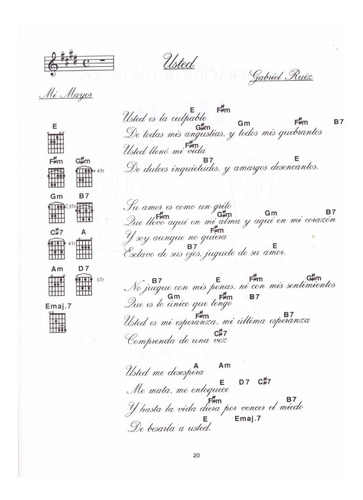 Usted
Gabriel Ruíz
Mi Mayor
E F#m
Usted es la culpable
Gm F#m B7
G#m
De todas mis angustias, y todos mis quebrantos
F#m
Usted llenó mi vida
B7 E B7
De dulces inquietudes, y amargos desencantos.
E
F#m G#m
Gm B7
C#7 A
Am D7
Emaj.7
4TR
4TR
5TR
E F#m
Su amor es como un grito
Gm G#m B7
Que llevo aquí en mi alma y aquí en mi corazón
F#m
Y soy aunque no quiera
B7 E
Esclavo de sus ojos, juguete de su amor.
B7 E F#m G#m
No juegue con mis penas, ni con mis sentimientos
Gm F#m B7
Que es lo único que tengo
F#m B7
Usted es mi esperanza, mi última esperanza
C#7
Comprenda de una vez
A Am
Usted me desespera
E D7 C#7
Me mata, me enloquece
F#m B7
Y hasta la vida diera por vencer el miedo
E Emaj.7
De besarla a usted.
20